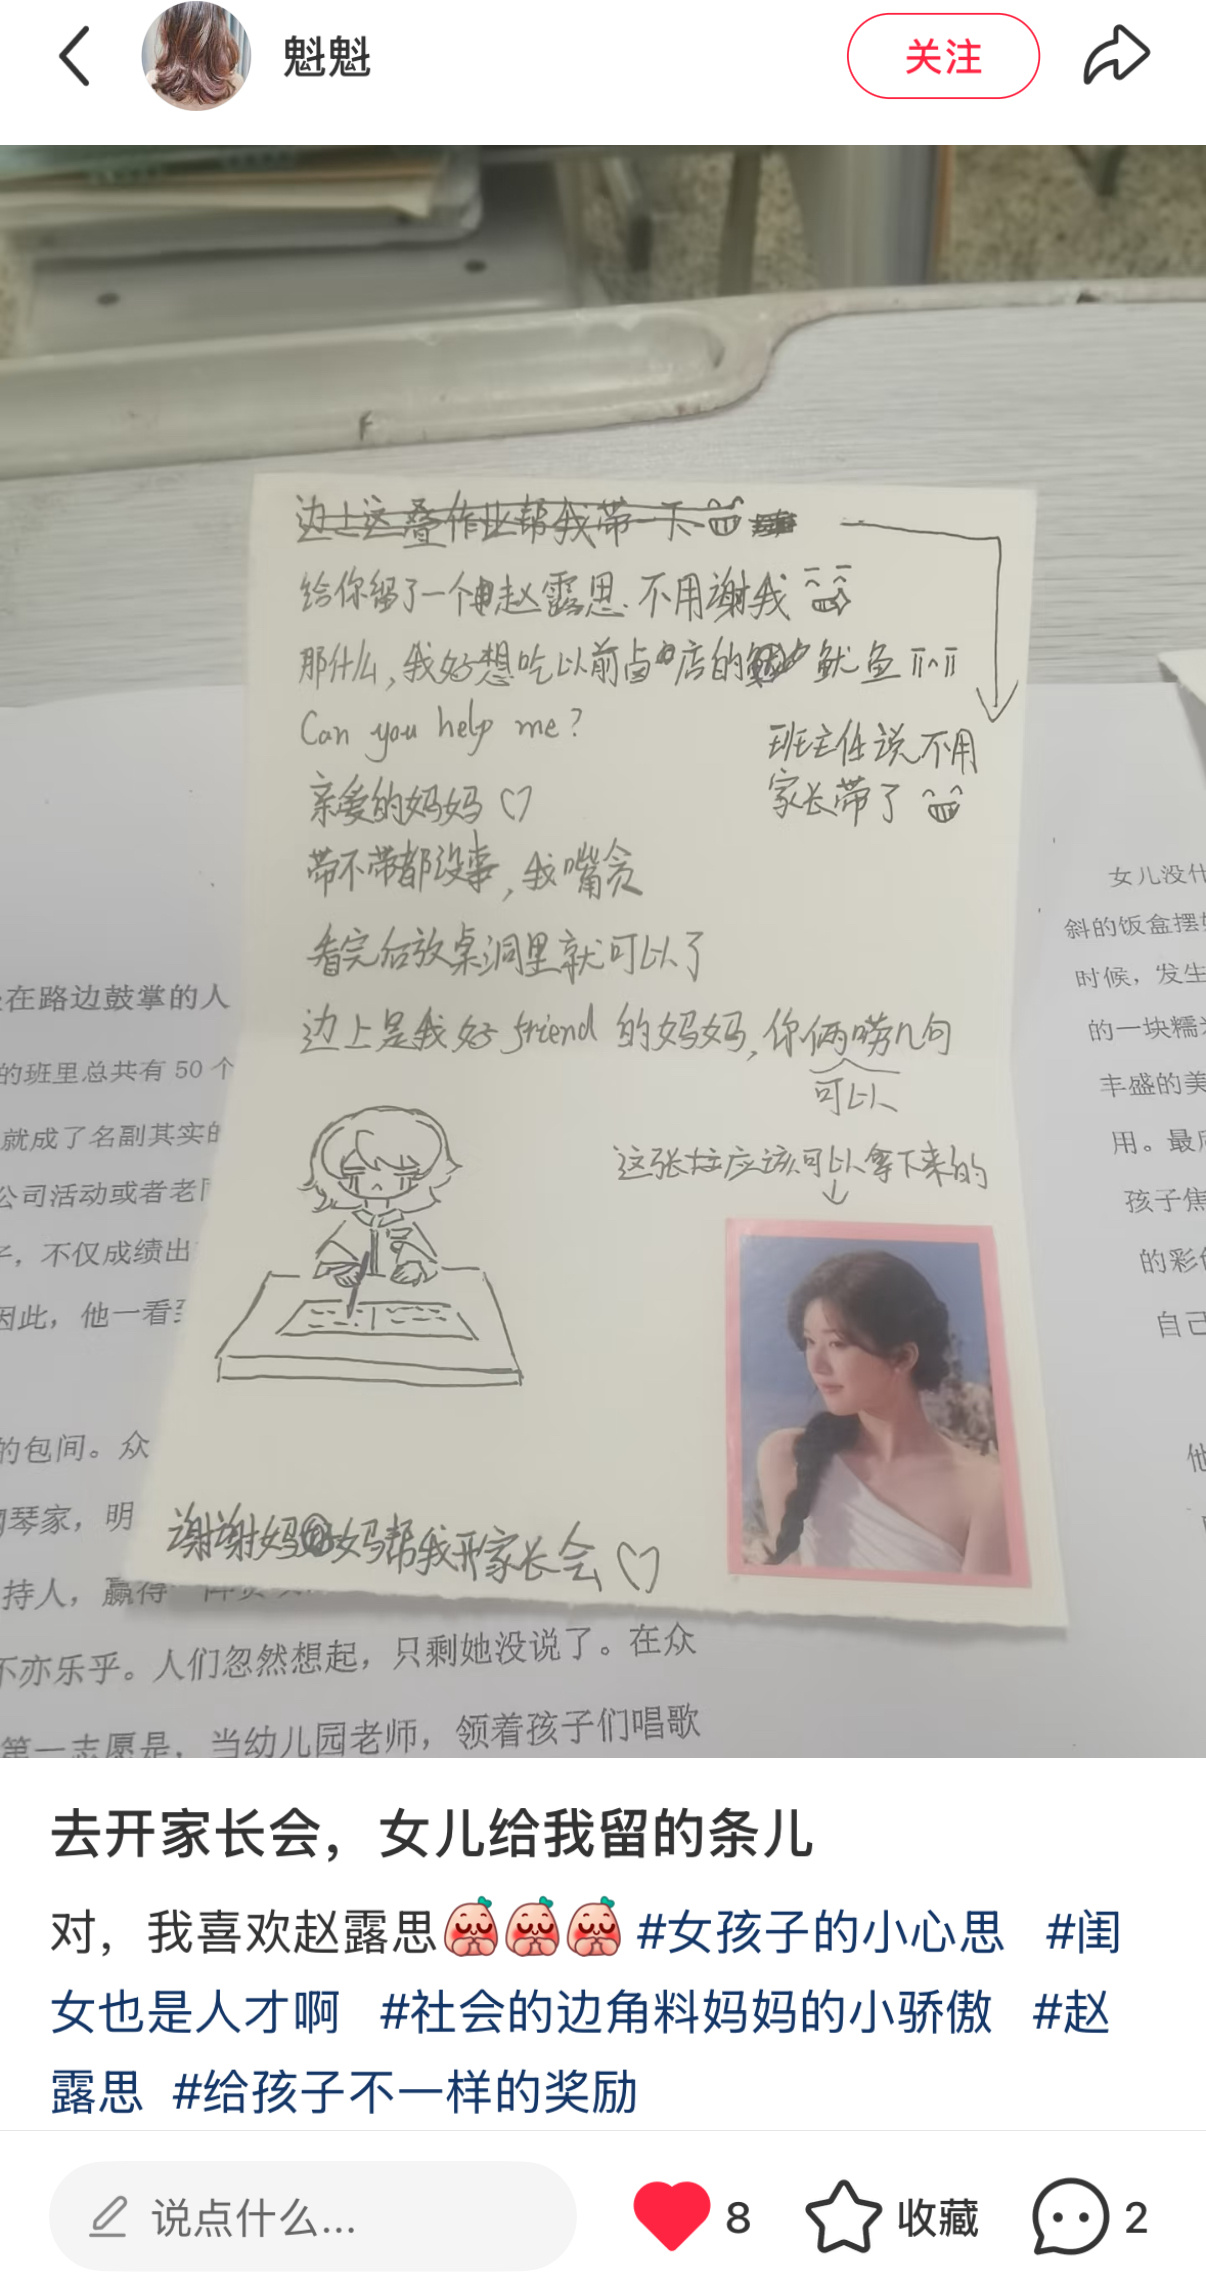 魁魁
关注
边上这叠作业帮我带一下
给你留了一个赵露思.不用谢我
那什么,我好想吃以前卤店的鱿鱼
Can you help me?
班主任说不用
家长带了
亲爱的妈妈♡
带不带都没事,我嘴贪
看完后放桌洞里就可以了
边上是我好friend的妈妈,你俩唠几句
可以
这张应该可以拿下来的
谢谢妈妈帮我开家长会♡
在路边鼓掌的人
的班里总共有50个
就成了名副其实的
公司活动或者老
,不仅成绩出
因此,他一看到
的包间。众
琴家,明
持人,赢得
不亦乐乎。人们忽然想起,只剩她没说了。在众
第一志愿是,当幼儿园老师,领着孩子们唱歌
女儿没什
斜的饭盒摆
时候,发生
的一块糯
丰盛的美
用。最
孩子焦
的彩色
自己
他
去开家长会,女儿给我留的条儿
对,我喜欢赵露思 #女孩子的小心思 #闺
女也是人才啊 #社会的边角料妈妈的小骄傲 #赵
露思 #给孩子不一样的奖励
说点什么...
8
收藏
2